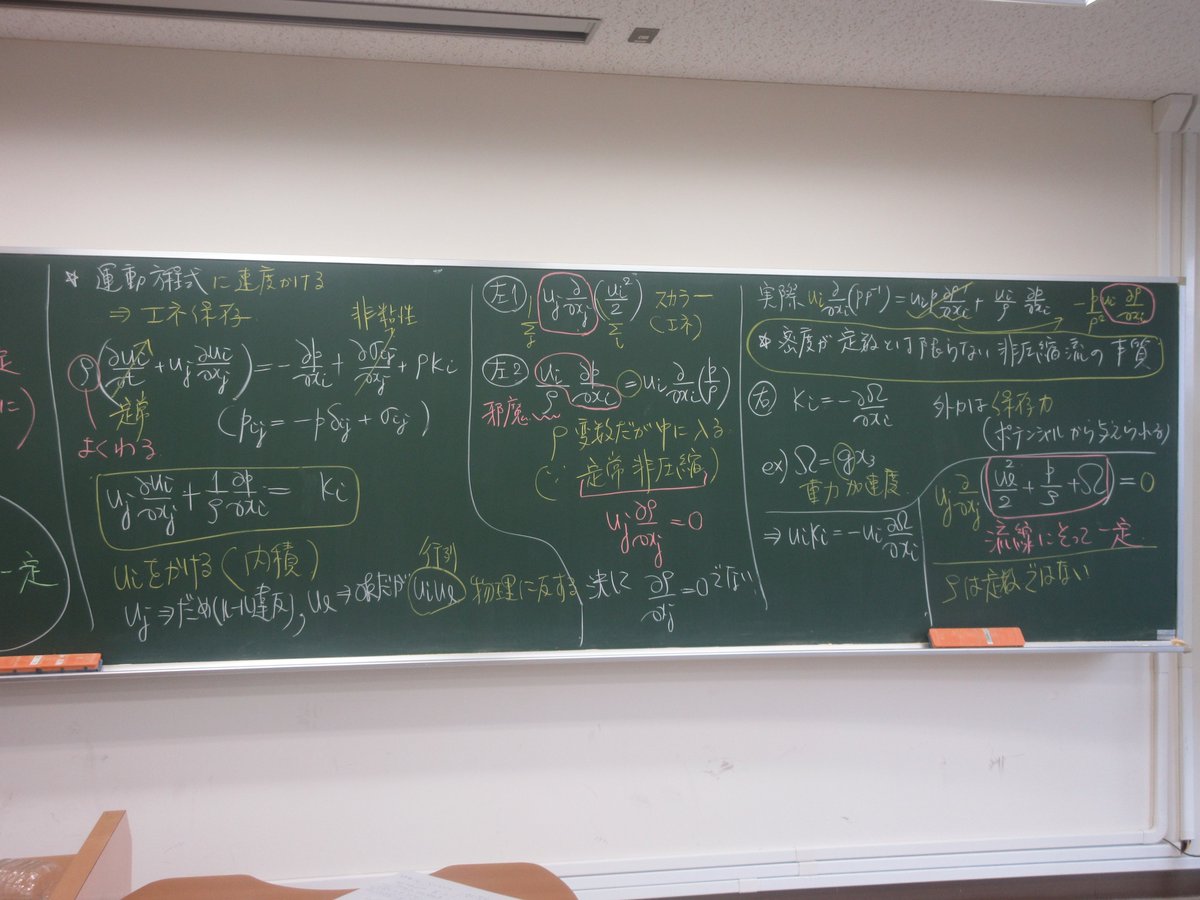 定
に)
一定
☆ 運動方程式に速度かける
⇒ エネ保存
非粘性
ρ(∂ui/∂t + uj ∂ui/∂xj) = -∂p/∂xi + ∂σij/∂xj + ρKi
定常
(pij = -pδij + σij)
よくわる
uj ∂ui/∂xj + 1/ρ ∂p/∂xi = Ki
uiをかける(内積)
行列
uj ⇒ だめ(ルール違反), ul ⇒ だが uiul 物理に反する
左1 uj ∂/∂xj (ui²/2) スカラー
Σj Σi (エネ)
左2 ui/ρ ∂p/∂xi = ui ∂/∂xi (p/ρ)
邪魔
ρ 変数だが中に入る
(∵ 定常非圧縮)
uj ∂ρ/∂xj = 0
決して ∂ρ/∂xj = 0 でない
実際 ui ∂/∂xi (pρ⁻¹) = ui p ∂ρ⁻¹/∂xi + ui/ρ ∂p/∂xi -p/ρ² ui ∂ρ/∂xi
* 密度が定数とは限らない非圧縮流の本質
右 Ki = -∂Ω/∂xi 外力は保存力
(ポテンシャルから与えられる)
ex) Ω = gx₃
重力加速度
⇒ uiKi = -ui ∂Ω/∂xi
uj ∂/∂xj (ul²/2 + p/ρ + Ω) = 0
流線にそって一定
ρは定数ではない